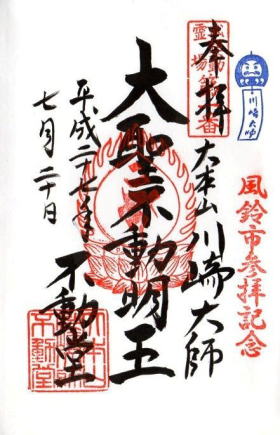 川崎大師
風鈴市参拝記念
奉拝
大本山川崎大師
大聖不動明王
不動堂
平成二十七年
七月二十日